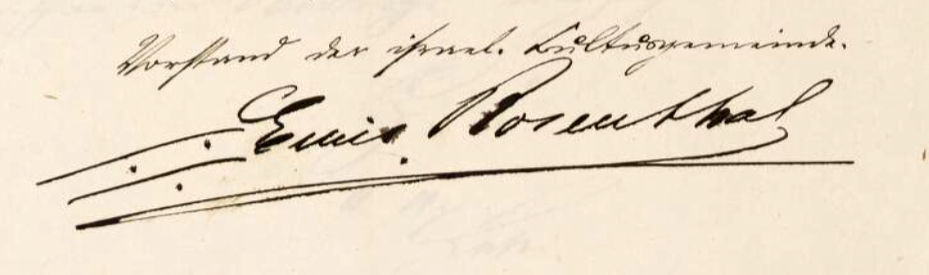 Vorstand der israel. Cultusgemeinde.
Emil Rosenthal